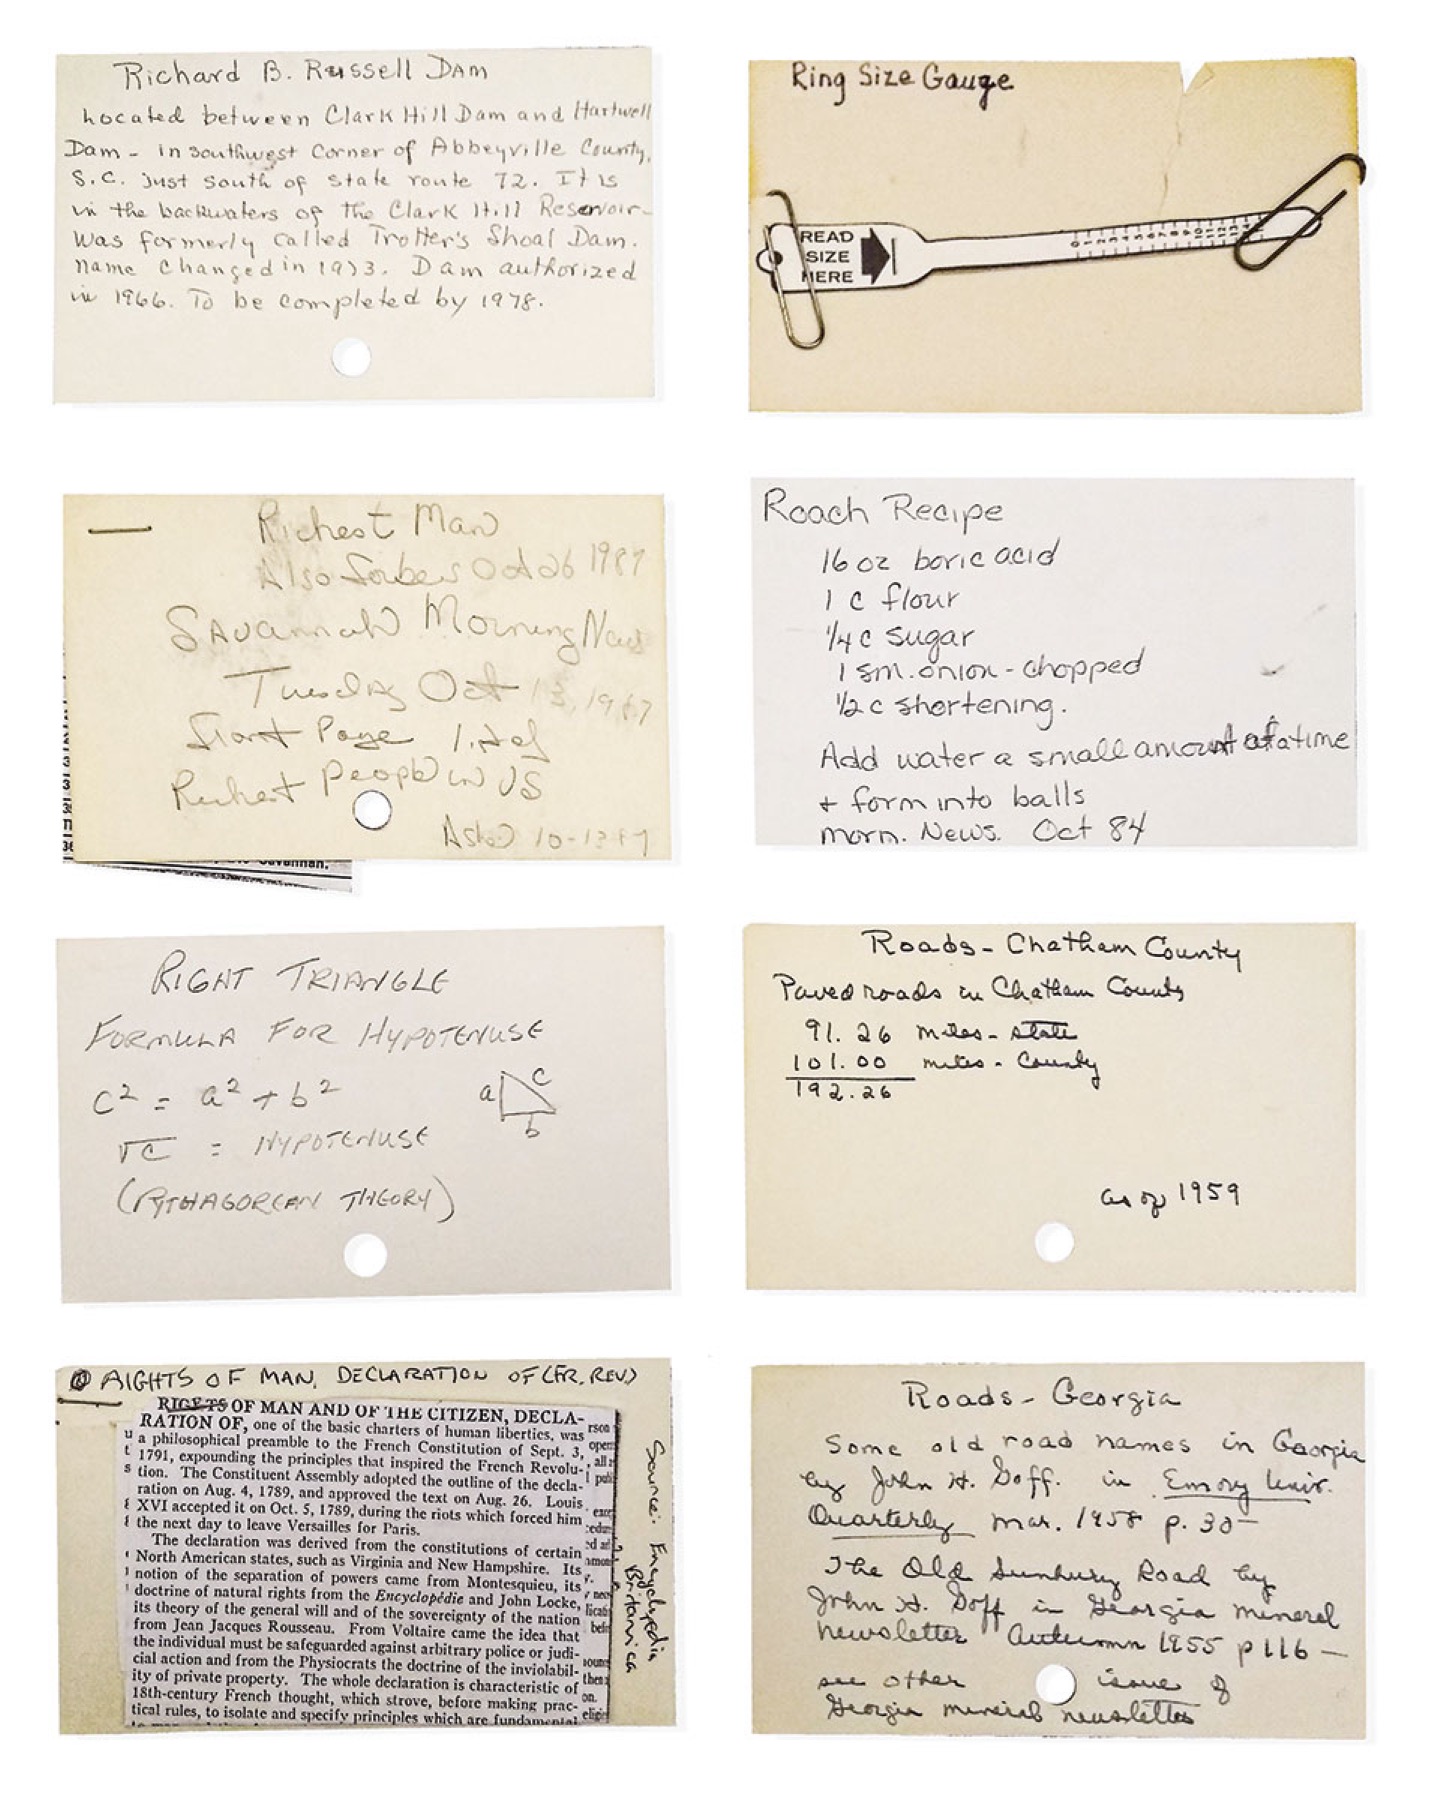 Richard B. Russell Dam
Located between Clark Hill Dam and Hartwell
Dam - in southwest corner of Abbeyville County,
S.C. just south of state route 72. It is
in the backwaters of the Clark Hill Reservoir-
Was formerly called Trotter's Shoal Dam.
name changed in 1973. Dam authorized
in 1966. To be completed by 1978.
Ring Size Gauge
READ
SIZE
HERE
Richest Man
Also Forbes Oct 26 1987
Savannah Morning News
Tuesday Oct 13, 1987
Front Page
Richest People in US
Asked 10-13 87
Savannah.
Roach Recipe
16 oz boric acid
1 c flour
1/4 c sugar
1 sm. onion - chopped
1/2 c shortening.
Add water a small amount at a time
+ form into balls
morn. News. Oct 84
RIGHT TRIANGLE
FORMULA FOR HYPOTENUSE
c² = a² + b²
a c
b
√c = HYPOTENUSE
(PYTHAGOREAN THEORY)
Roads - Chatham County
Paved roads in Chatham County
91.26 miles - state
101.00 miles - County
192.26
as of 1959
RIGHTS OF MAN, DECLARATION OF (FR. REV.)
RIGHTS OF MAN AND OF THE CITIZEN, DECLA-
RATION OF, one of the basic charters of human liberties, was
a philosophical preamble to the French Constitution of Sept. 3,
1791, expounding the principles that inspired the French Revolu-
tion. The Constituent Assembly adopted the outline of the decla-
ration on Aug. 4, 1789, and approved the text on Aug. 26. Louis
XVI accepted it on Oct. 5, 1789, during the riots which forced him
the next day to leave Versailles for Paris.
The declaration was derived from the constitutions of certain
North American states, such as Virginia and New Hampshire. Its
notion of the separation of powers came from Montesquieu, its
doctrine of natural rights from the Encyclopédie and John Locke,
its theory of the general will and of the sovereignty of the nation
from Jean Jacques Rousseau. From Voltaire came the idea that
the individual must be safeguarded against arbitrary police or judi-
cial action and from the Physiocrats the doctrine of the inviolabil-
ity of private property. The whole declaration is characteristic of
18th-century French thought, which strove, before making prac-
tical rules, to isolate and specify principles which are fundamental
Source: Encyclopedia
Britannica
Roads - Georgia
Some old road names in Georgia
by John H. Goff. in Emory Univ.
Quarterly Mar. 1958 p. 30-
The Old Sunbury Road by
John H. Goff in Georgia mineral
newsletter Autumn 1955 p 116 -
see other issue of
Georgia mineral newsletter